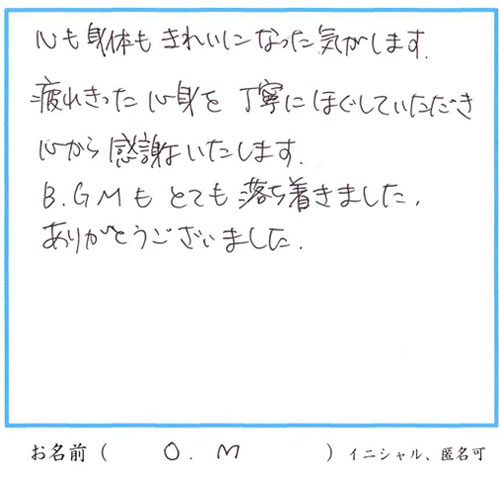 心も身体もきれいになった気がします.
疲れきった心身を丁寧にほぐしていただき
心から感謝いたします.
B.GMもとても落ち着きました.
ありがとうございました.
お名前 ( O. M ) イニシャル、匿名可